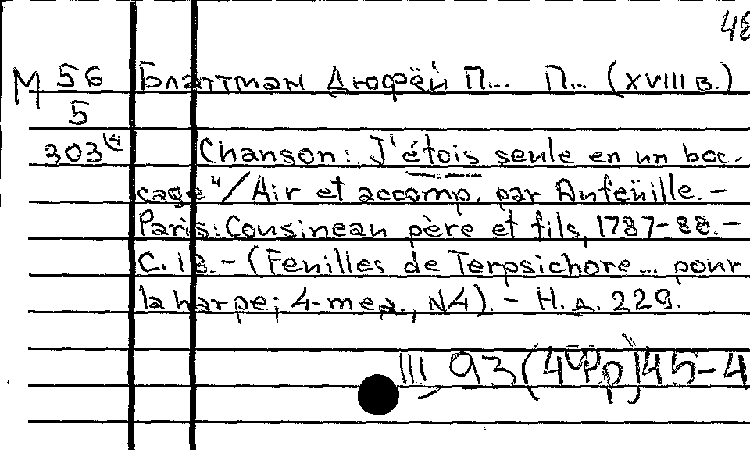 48
М 56 Блаттман Дюфёй П... П... (XVIII в.)
5
303 (4) Chanson: J'étois seule en un boc-
cage"/Air et accomp. par Dufeüille. -
Paris: Cousineau père et fils, 1787-88. -
C. 13. - (Feuilles de Terpsichore... pour
la harpe; 4-me a., N4). - Н. д. 229.
III, 93 (4Фр) 45-4